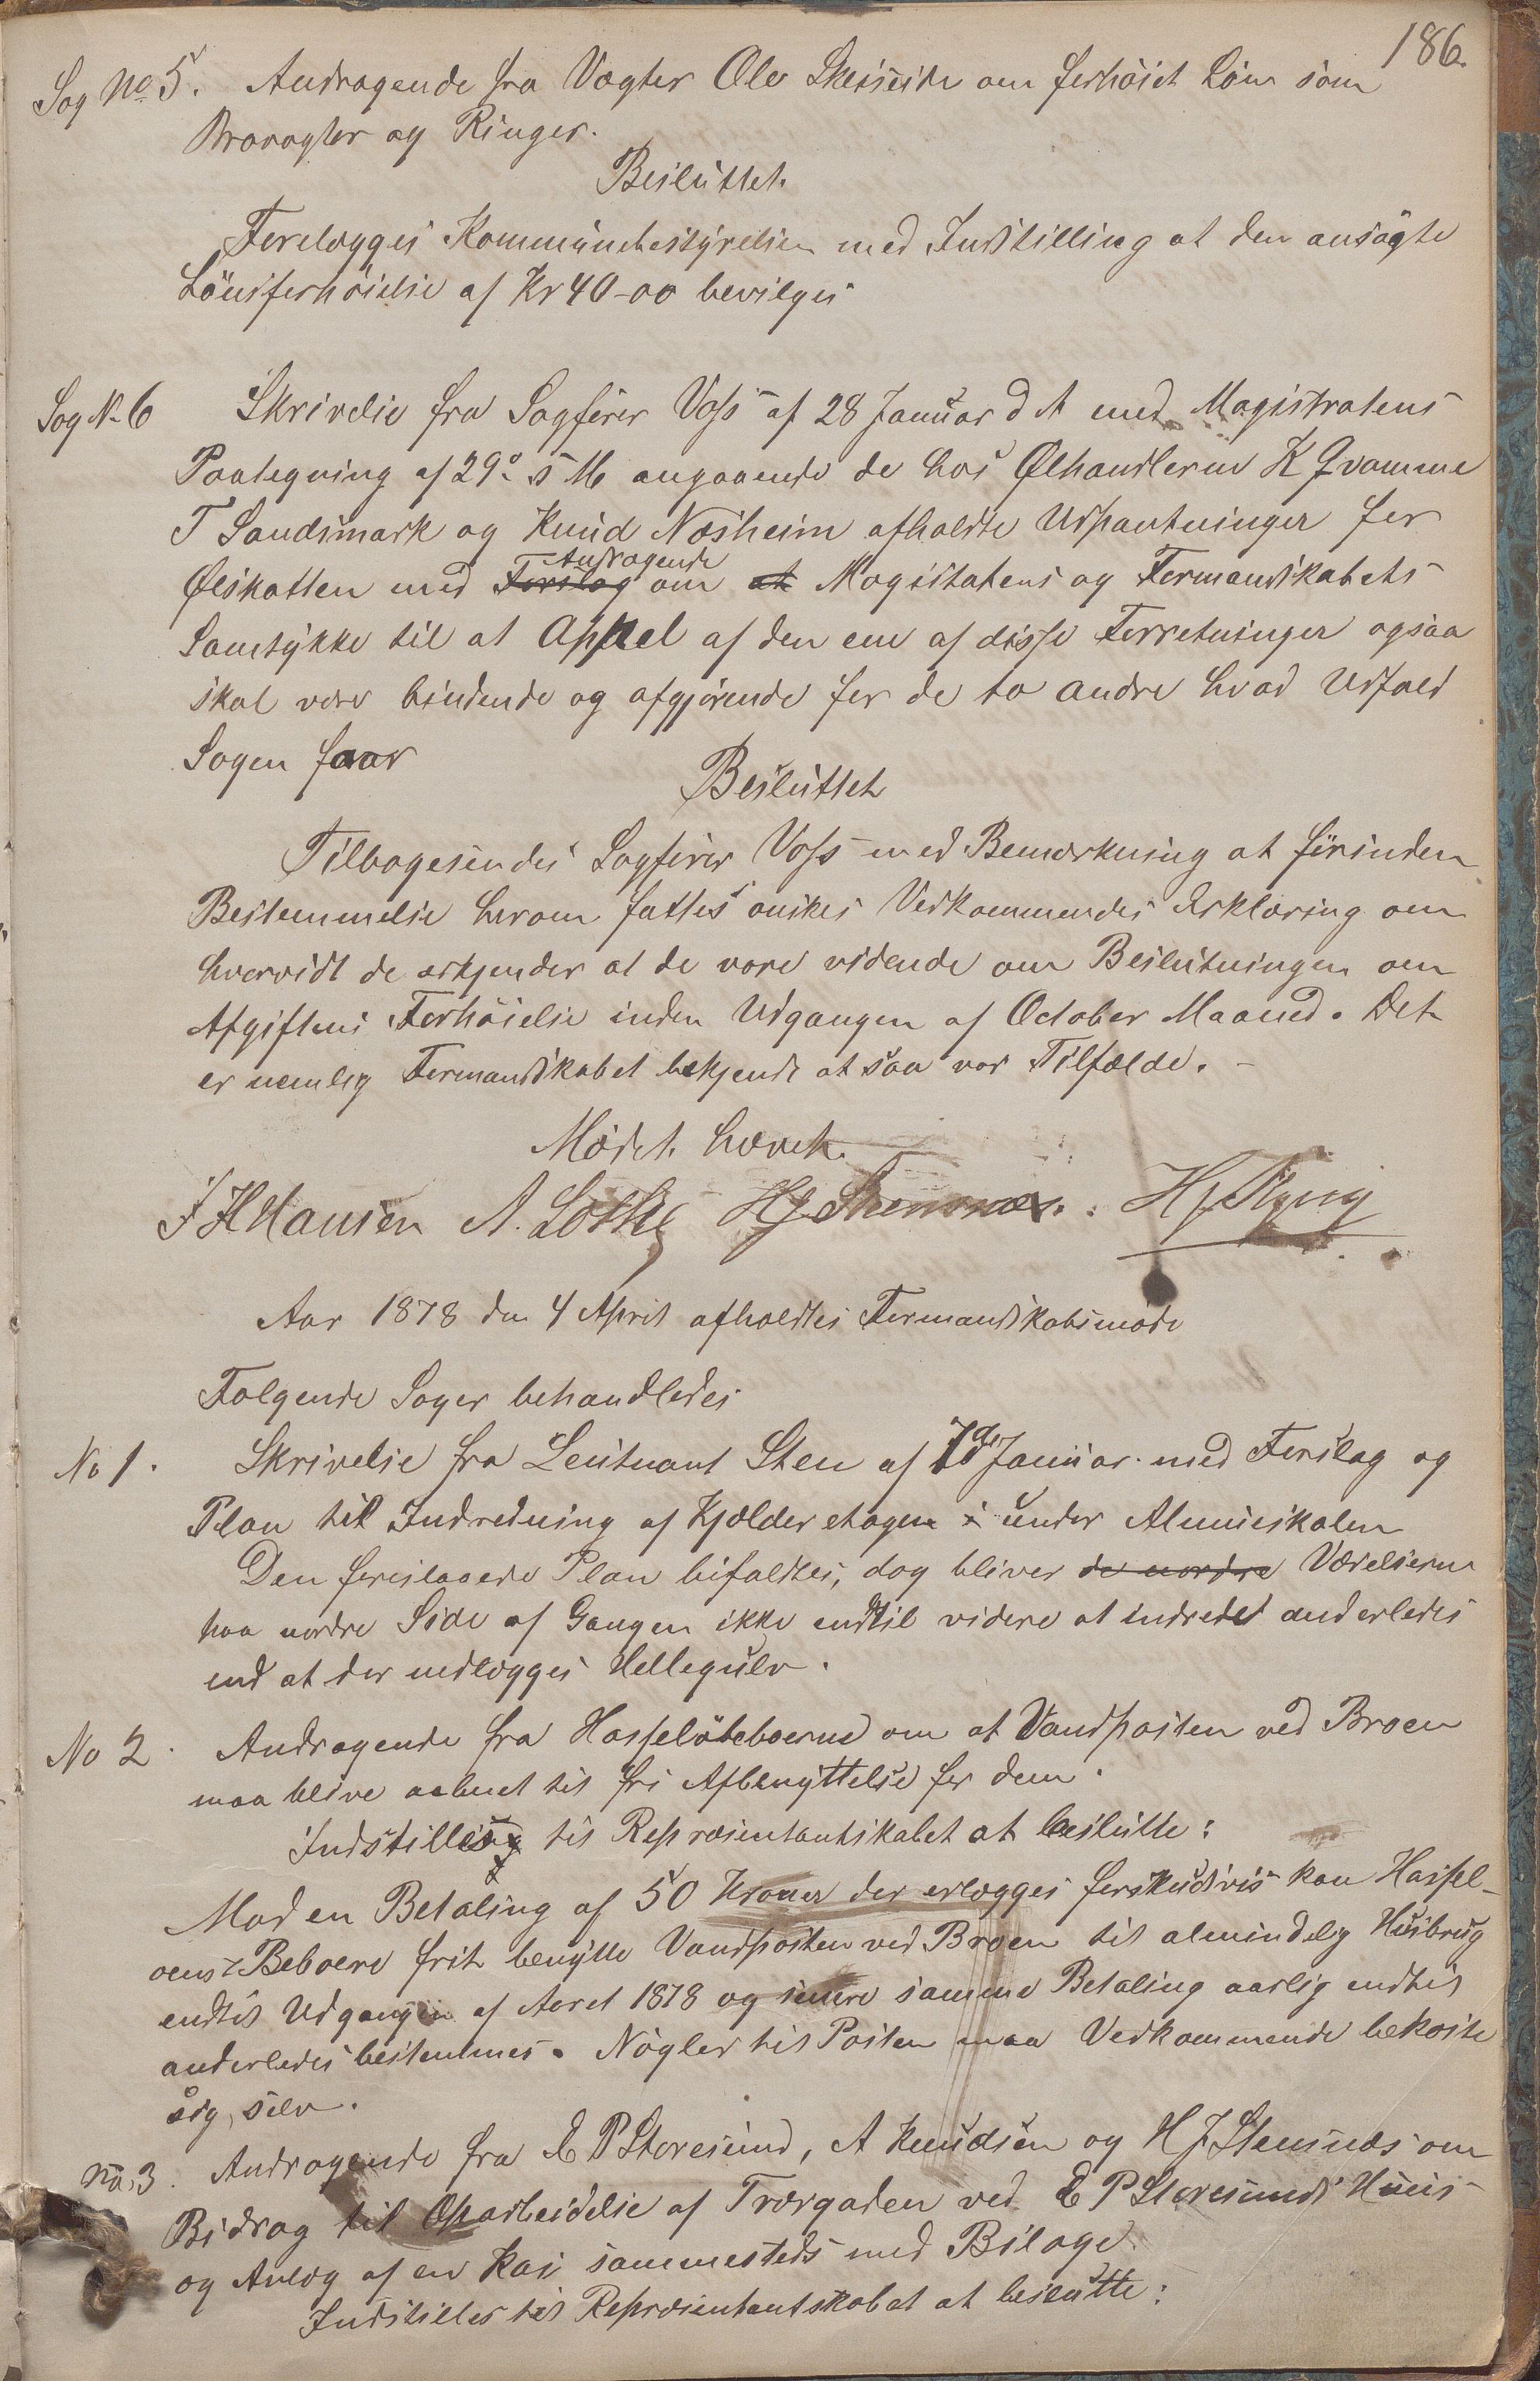 186.
Sag No 5. Andragende fra Vægter Ole Skeiseide om forhøiet Løn som
Brovagter og Ringer.
Besluttet.
Forelægges Kommunebestyrelsen med Indstilling at den ansøgte
Lönsforhöielse af Kr 40-00 bevilges
Sag N. 6 Skrivelse fra Sagfører Voss af 28 Januar d A med Magistratens
Paategning af 29de s M angaaende de hos Ølhandlerne K Qvamme
T Sandsmark og Knud Næsheim afholdte Udpantninger for
Ølskatten med Forslag Andragende om at Magistatens og Formandskabets
Samtykke til at Appel af den ene af disse Forretninger ogsaa
skal være bindende og afgjørende for de to andre hvad Udfald
Sagen faar
Besluttet
Tilbagesendes Sagfører Voss med Bemærkning at førinden
Bestemmelse herom fattes ønskes Vedkommendes Erklæring om
hvorvidt de erkjender at de vare vidende om Beslutningen om
Afgiftens Forhöielse inden Udgangen af October Maaned. Det
er nemlig Formandskabet bekjendt at saa var Tilfælde. -
Mødet hævet.
J H Hansen A. Lothe H J Stensnæs.
Aar 1878 den 4 April afholdtes Formandskabsmøde
Følgende Sager behandledes
No 1. Skrivelse fra Leutnant Sten af 7de Januar med Forslag og
Plan til Indredning af Kjælderetagen i under Almueskolen
Den foreslaaede Plan bifaldtes, dog bliver de nordre Værelserne
paa nordre Side af Gangen ikke indtil videre at indredet anderledes
end at der nedlægges Hellegulv.
No 2. Andragende fra Hasselöbeboerne om at Vandposten ved Broen
maa blive aabnet til fri Afbenyttelse for dem.
Indstilles til Repræsentantskabet at beslutte:
Mod en Betaling af 50 Kroner der erlægges forskudsvis kan Hassel-
oens Beboere frit benytte Vandposten ved Broen til almindelig Husbrug
indtil Udgangen af Aaret 1878 og senere samme Betaling aarlig indtil
anderledes bestemmes. Nøgler til Posten maa Vedkommende bekoste
sig selv.
No. 3. Andragende fra E P Storesund, A Knudsen og H J Stensnæs om
Bidrag til Oparbeidelse af Torvgaden ved E P Storesunds Huus
og Anlæg af en Kai sammesteds med Bilage.
Indstilles til Repræsentantskabet at beslutte: